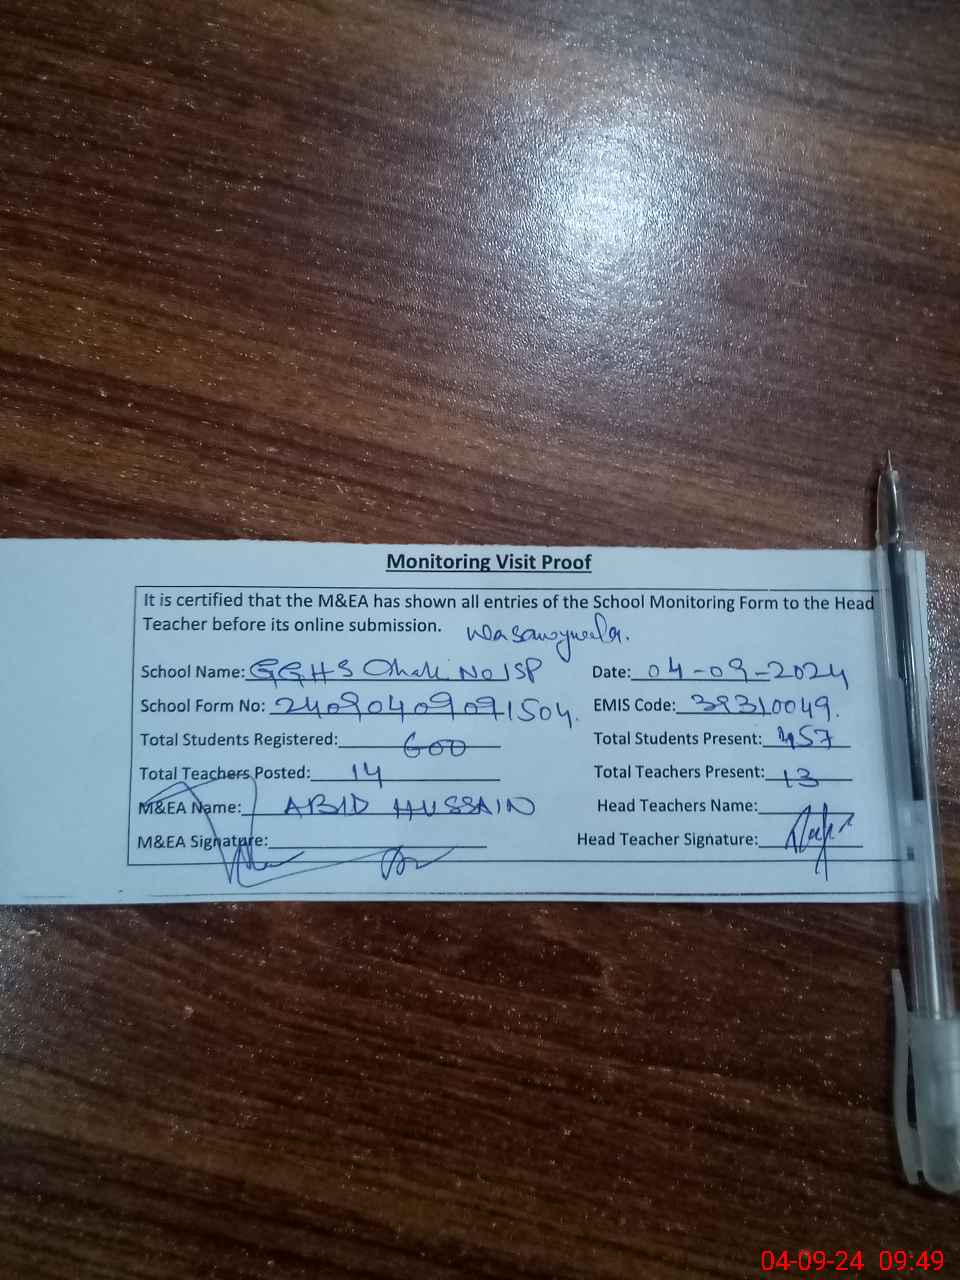 Monitoring Visit Proof
It is certified that the M&EA has shown all entries of the School Monitoring Form to the Head
Teacher before its online submission.
School Name: GGHS No 1 SP Date: 04-09-2024
School Form No: 24090409091504. EMIS Code: 38310049.
Total Students Registered: 600 Total Students Present: 457
Total Teachers Posted: 14 Total Teachers Present: 13
M&EA Name: ABID HUSSAIN Head Teachers Name:
M&EA Signature: Head Teacher Signature:
04-09-24 09:49